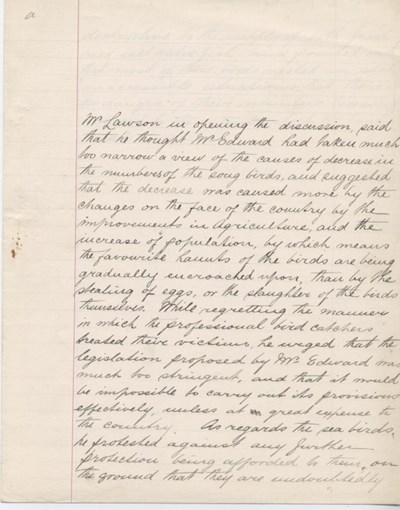 a
Mr Lawson in opening the discussion, said
that he thought Mr Edward had taken much
too narrow a view of the causes of decrease in
the numbers of the song birds, and suggested
that the decrease was caused more by the
changes on the face of the country by the
improvements in Agriculture, and the
increase of population, by which means
the favourite haunts of the birds are being
gradually encroached upon, than by the
stealing of eggs, or the slaughter of the birds
themselves. While regretting the manner
in which the professional bird catchers
treated their victims, he urged that the
legislation proposed by Mr Edward was
much too stringent, and that it would
be impossible to carry out its provisions
effectively, unless at great expense to
the country. As regards the sea birds,
he protested against any further
protection being afforded to them, on
the ground that they are undoubtedly